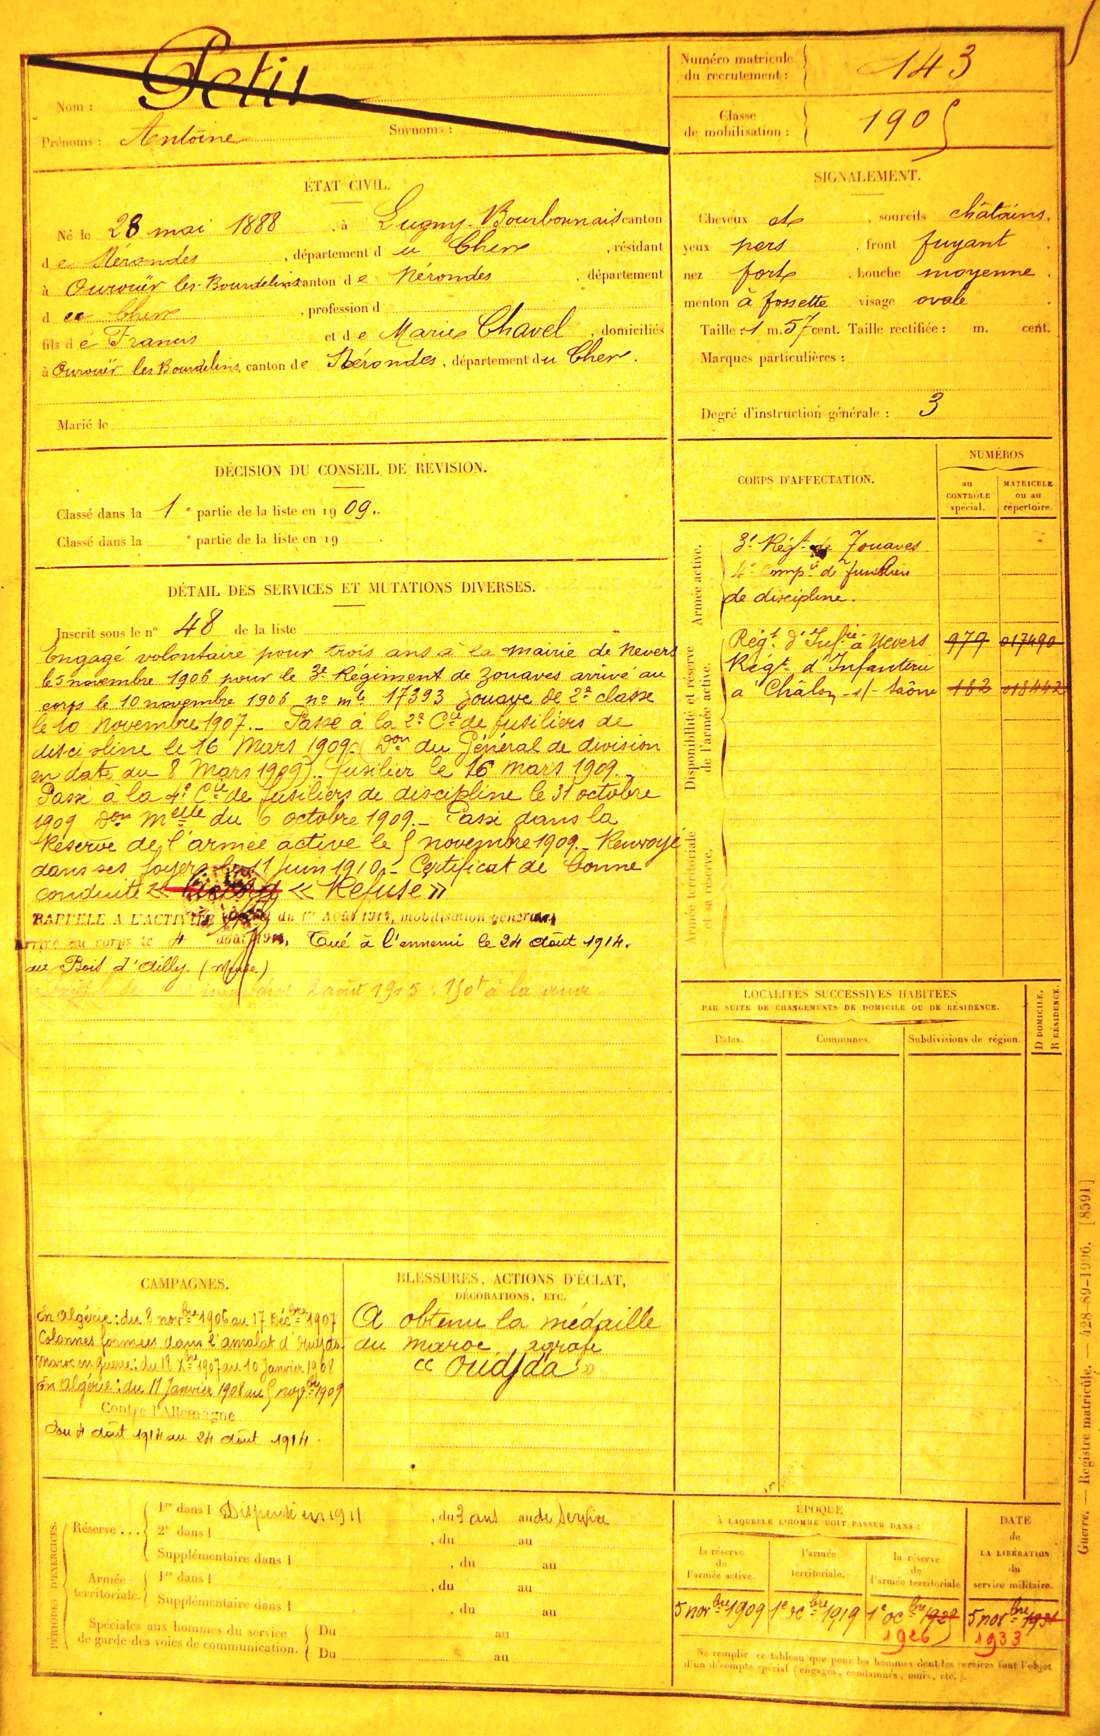 Nom : Petit
Prénoms : Antoine Surnoms :
Numéro matricule du recrutement : 143
Classe de mobilisation : 1905
ÉTAT CIVIL.
Né le 28 mai 1888, à Lugny-Bourbonnais canton
de Nérondes, département du Cher, résidant
à Ourouër les Bourdelins canton de Nérondes, département
du Cher, profession d
fils de Francis et de Marie Chavel, domiciliés
à Ourouër les Bourdelins, canton de Nérondes, département du Cher.
Marié le
SIGNALEMENT.
Cheveux et, sourcils châtains,
yeux pers, front fuyant.
nez fort, bouche moyenne.
menton à fossette visage ovale
Taille : 1 m. 57 cent. Taille rectifiée : m. cent.
Marques particulières :
Degré d'instruction générale : 3
DÉCISION DU CONSEIL DE REVISION.
Classé dans la 1e partie de la liste en 1909.
Classé dans la e partie de la liste en 19 .
DÉTAIL DES SERVICES ET MUTATIONS DIVERSES.
Inscrit sous le n° 48 de la liste
Engagé volontaire pour trois ans à la mairie de Nevers
le 5 novembre 1906 pour le 3e Régiment de Zouaves arrivé au
corps le 10 novembre 1906 no mle 17393 Zouave de 2e classe
le 10 novembre 1907.- Passé à la 2e Cie de fusiliers de
discipline le 16 Mars 1909. (Don du Général de division
en date du 8 Mars 1909).. Fusilier le 16 mars 1909.-
Passé à la 4e Cie de fusiliers de discipline le 31 octobre
1909 Don Melle du 6 octobre 1909.- Passé dans la
Réserve de l'armée active le 5 novembre 1909.- Renvoyé
dans ses foyers le 11 Juin 1910.- Certificat de bonne
conduite « Refusé »
RAPPELÉ A L'ACTIVITÉ du 1er Août 1914, mobilisation générale
Arrivé au corps le 4 août 1914. Tué à l'ennemi le 24 Août 1914.
au Bois d'Ailly. (Meuse)
août 1915 : 150f à la
CORPS D'AFFECTATION.
NUMÉROS
au CONTRÔLE spécial.
MATRICULE ou au répertoire.
Armée active.
3e Régt de Zouaves
4e Compie de fusiliers
de discipline.
Disponibilité et réserve de l'armée active.
Régt d'Infie à Nevers 979 017490
Régt d'Infanterie
à Châlon-s/-Saône 182 018442
Armée territoriale et sa réserve.
LOCALITÉS SUCCESSIVES HABITÉES
PAR SUITE DE CHANGEMENTS DE DOMICILE OU DE RÉSIDENCE.
Dates. Communes. Subdivisions de région.
D DOMICILE.
R RÉSIDENCE.
CAMPAGNES.
En Algérie : du 8 novbre 1906 au 17 Décbre 1907
Colonnes formées dans l'amalat d'Oudjda
Maroc en guerre : du 18 Xbre 1907 au 10 Janvier 1908
En Algérie : du 11 Janvier 1908 au 5 novbre 1909
Contre l'Allemagne
Du 4 Août 1914 au 24 Août 1914.
BLESSURES, ACTIONS D'ÉCLAT,
DÉCORATIONS, ETC.
A obtenu la médaille
du maroc agrafe
« Oudjda »
PÉRIODES D'EXERCICES.
Réserve ...
1re dans l Dispensé en 1911, du 3 ans au de service
2e dans l , du au
Supplémentaire dans l , du au
Armée territoriale.
1re dans l , du au
Supplémentaire dans l , du au
Spéciales aux hommes du service
de garde des voies de communication.
Du au
Du au
ÉPOQUE
À LAQUELLE L'HOMME DOIT PASSER DANS :
la réserve de l'armée active.
l'armée territoriale.
la réserve de l'armée territoriale
DATE de LA LIBÉRATION du service militaire.
5 novbre 1909 1e ocbre 1919 1e ocbre 1922 5 novbre 1931
1926 1933
Ne remplir ce tableau que pour les hommes dont les services font l'objet
d'un décompte spécial (engagés, condamnés, omis, etc.).
Guerre. — Registre matricule. — 428-89-1906. [8591]